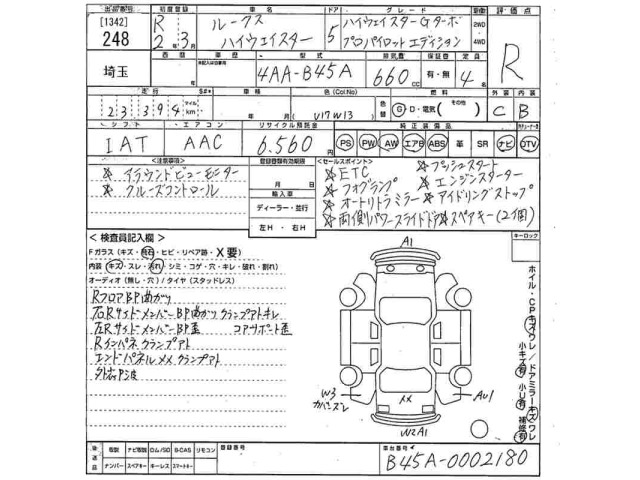 出品番号 初度登録 車名 ドア グレード 駆動 評価点
[1342]
248
R 2年 3月
ルークス
ハイウェイスター
5
ハイウェイスターGターボ
プロパイロットエディション
2WD
4WD
R
埼玉
車歴 型式 排気量 保証書 定員 外装 内装
4AA-B45A 660cc 有・無 4名 C B
走行 車検 色(Color No.) 燃料
23394 マイル km 年 月 V17W13 色替 G・D・電気(その他)
シフト エアコン リサイクル預託金 純正装備
IAT AAC 6,560円 PS PW AW エアB ABS 革 SR ナビ DTV
<注意事項> 登録書類有効期限 <セールスポイント>
☆アラウンドビューモニター
☆クルーズコントロール
月 日
輸入車
ディーラー・並行
左H・右H
☆ETC ☆プッシュスタート
☆フォグランプ ☆エンジンスターター
☆オートリトラミラー ☆アイドリングストップ
☆両側パワースライドドア ☆スペアキー(2個)
キーロック
<検査員記入欄>
Fガラス(キズ・飛石・ヒビ・リペア跡・X要)
内装(キズ・スレ・汚れ・シミ・コゲ・穴・キレ・破れ・割れ)
オーディオ(無し・穴)/タイヤ(スタッドレス)
RフロアBP曲がり
右RサイドメンバーBP曲がりクランプアトキレ
左RサイドメンバーBP歪 コアサポート歪
Rインパネクランプアト
エンドパネルメメクランプアト
外装P波
A1
W3
カバースレ
メメ
AU1
W2A1
ホイル・CPキズワレ/ドアミラーキズワレ
小キズ有 小U有 補修有
書類 ナビ取説 ロム/SD B-CAS リモコン 登録番号 車台番号
ナンバー スペアキー キーレス スマートキー
B45A-0002180